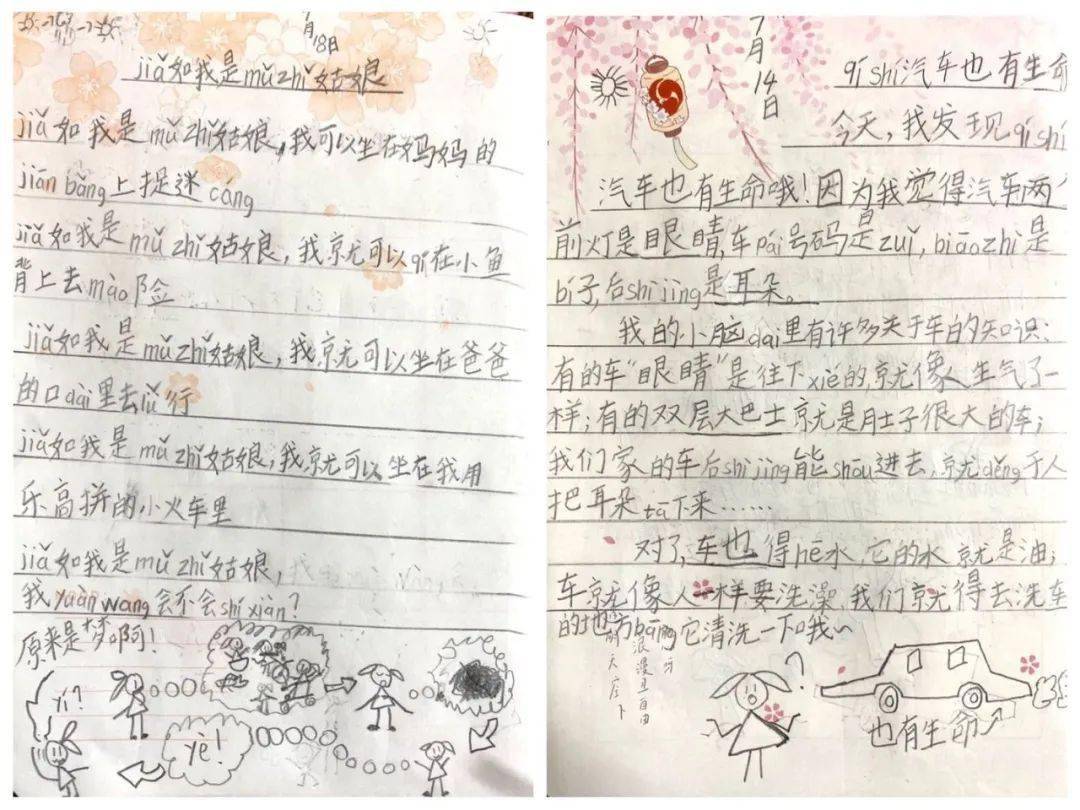 7月18日
jiǎ如我是mǔ zhǐ姑娘
jiǎ如我是mǔ zhǐ姑娘,我可以坐在妈妈的
jiān bǎng上捉迷cáng
jiǎ如我是mǔ zhǐ姑娘,我就可以qí在小鱼
背上去mào险
jiǎ如我是mǔ zhǐ姑娘,我就可以坐在爸爸
的口dài里去lǚ行
jiǎ如我是mǔ zhǐ姑娘,我就可以坐在我用
乐高拼的小火车里
jiǎ如我是mǔ zhǐ姑娘,
我yuàn wàng会不会shí xiàn?
原来是梦啊!
yí?
yè!
7月14日
qí shí汽车也有生命
今天,我发现qí shí
汽车也有生命哦!因为我觉得汽车两个
前灯是眼睛,车pái号码是zuǐ,biāo zhì是
bí子,后shì jìng是耳朵。
我的小脑dai里有许多关于车的知识:
有的车“眼睛”是往下xié的,就像人生气了一
样;有的双层大巴士就是肚子很大的车;
我们家的车后shì jìng能shōu进去,就děng于人
把耳朵tā下来……
对了,车也得hē水,它的水就是油;
车就像人一样要洗澡,我们就得去洗车
的地方bāng它清洗一下哦~
?
也有生命